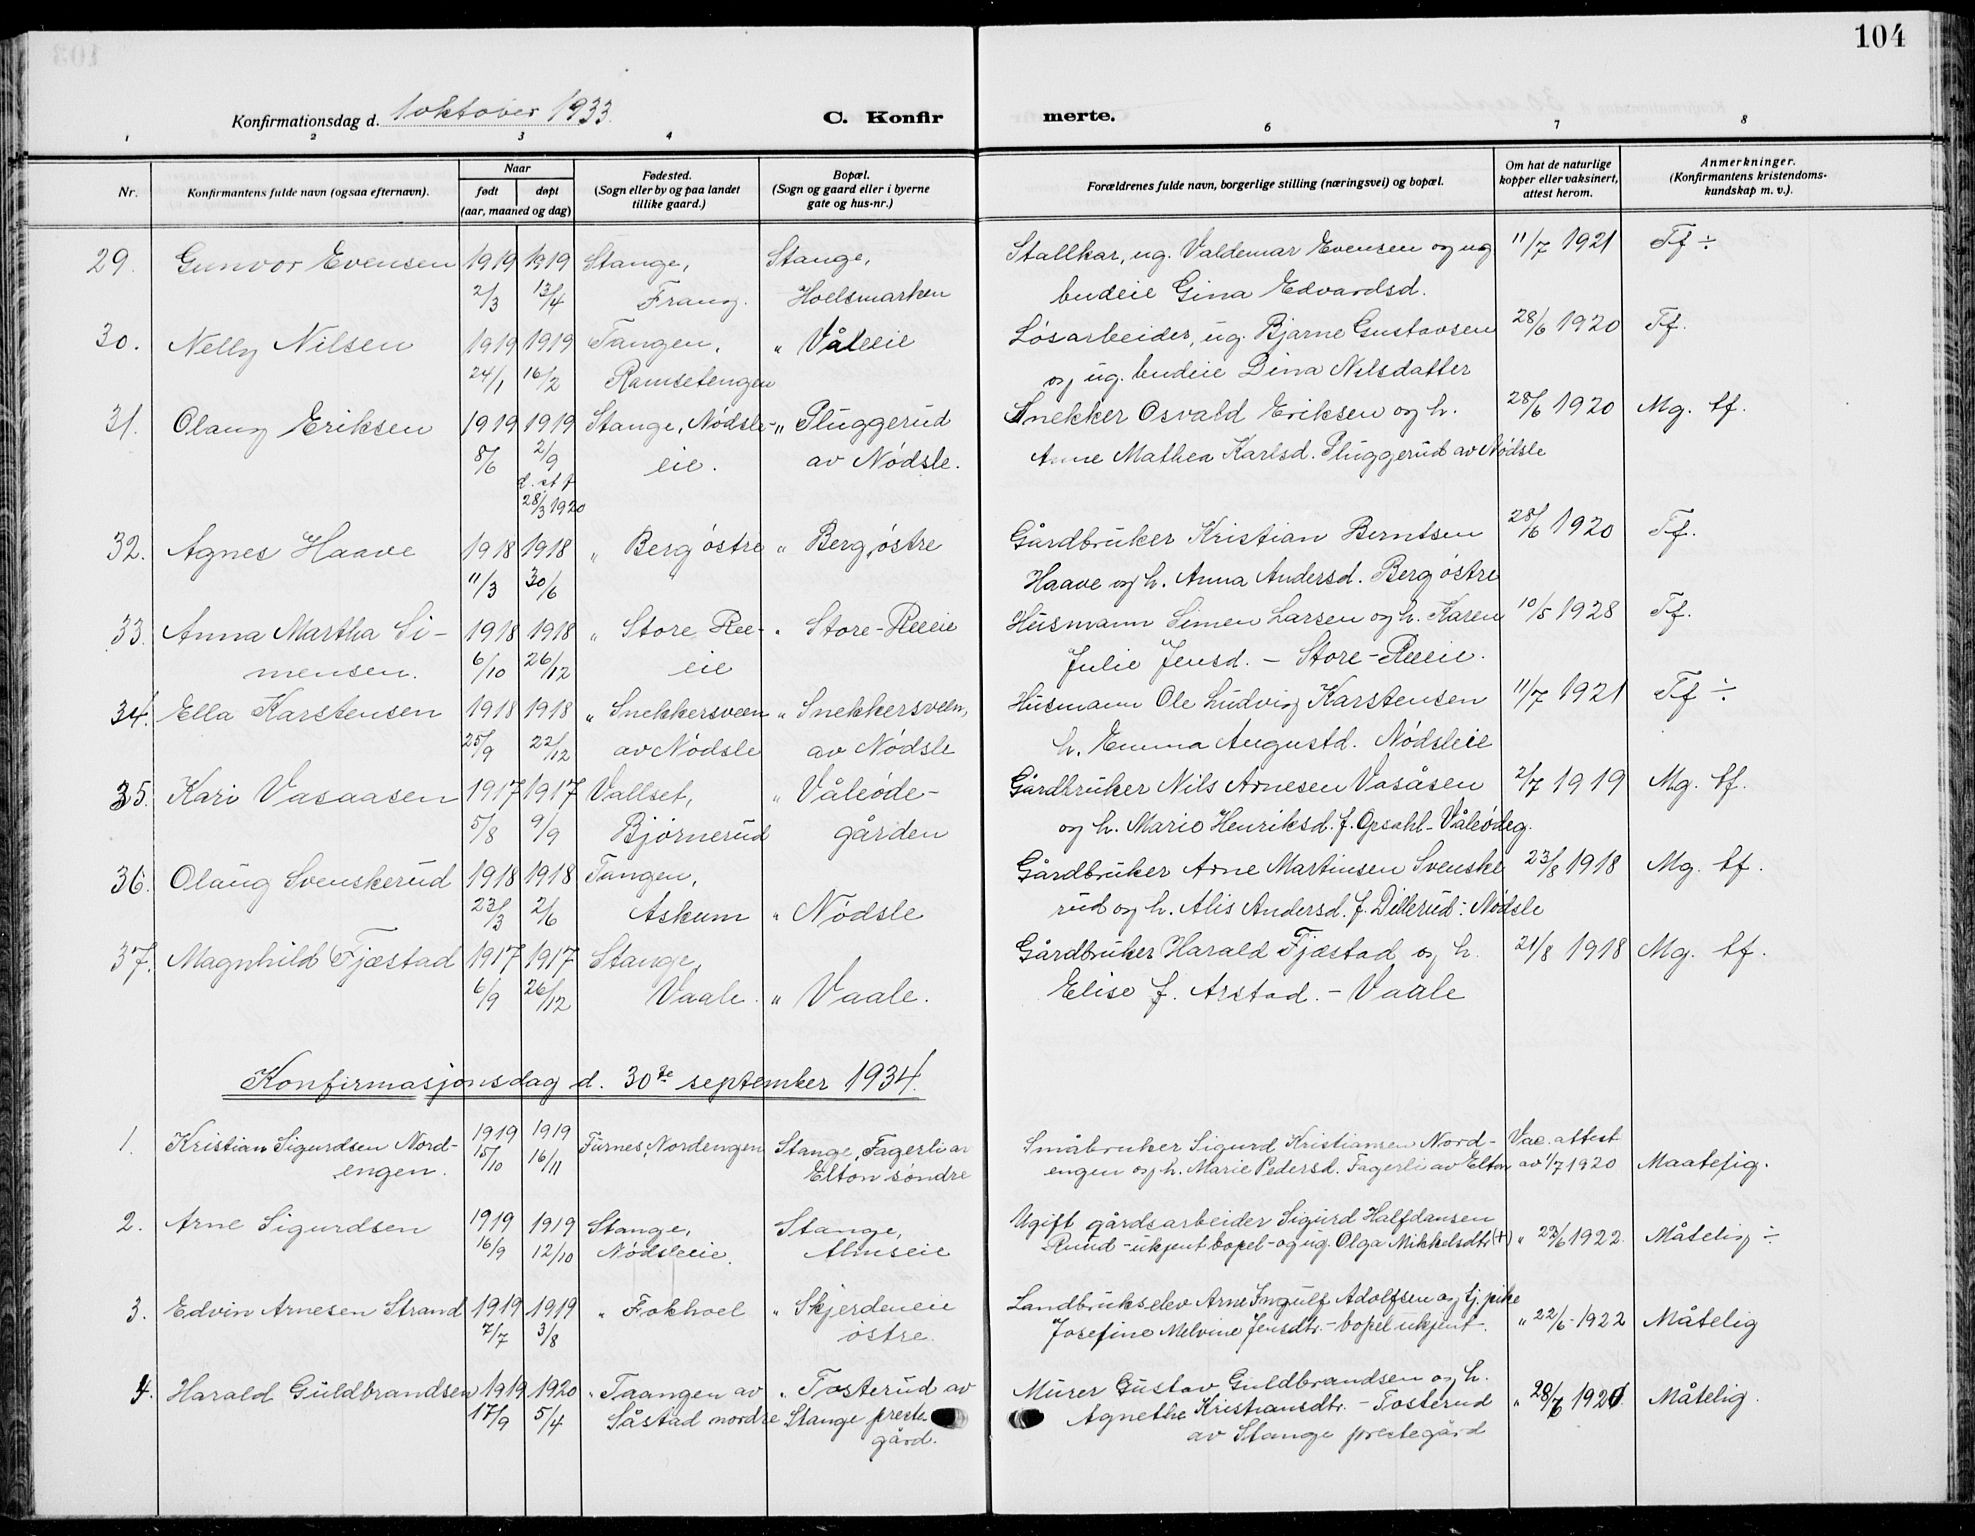 104
Konfirmationsdag d. 1 oktober 1933.
C. Konfirmerte.
1 2 3 4 6 7 8
Nr.
Konfirmantens fulde navn (ogsaa efternavn).
Naar
født døpt
(aar, maaned og dag)
Fødested.
(Sogn eller by og paa landet
tillike gaard.)
Bopæl.
(Sogn og gaard eller i byerne
gate og hus-nr.)
Forældrenes fulde navn, borgerlige stilling (næringsvei) og bopæl.
Om hat de naturlige
kopper eller vaksinert,
attest herom.
Anmerkninger.
(Konfirmantens kristendoms-
kundskap m. v.).
29. Gunvor Evensen 1919 1919 Stange, Stange, Stallkar, ug. Valdemar Evensen og ug 11/7 1921 Tf ÷
2/3 13/4 Frang. Hoelsmarken budeie Gina Edvardsd.
30. Nelly Nilsen 1919 1919 Tangen, " Våleeie Løsarbeider, ug. Bjarne Gustavsen 28/6 1920 Tf.
24/1 16/2 Ramsetengen og ug. budeie Dina Nilsdatter
31. Olaug Eriksen 1919 1919 Stange, Nødsle- " Pluggerud Snekker Osvald Eriksen og h. 28/6 1920 Mg. tf.
8/6 2/9 eie. av Nødsle. Anne Mathea Karlsd. Pluggerud av Nødsle
d. st f
28/3 1920
32. Agnes Haave 1918 1918 " Berg østre " Berg østre Gårdbruker Kristian Berntsen 28/6 1920 Tf.
11/3 30/6 Haave og h. Anna Andersd. Berg østre
33. Anna Martha Si- 1918 1918 " Store Ree- " Store-Reeie Husmann Simen Larsen og h. Karen 10/5 1928 Tf.
mensen. 6/10 26/12 eie Julie Jensd. - Store-Reeie.
34. Ella Karstensen 1918 1918 " Snekkersveen " Snekkersveen, Husmann Ole Ludvig Karstensen 11/7 1921 Tf ÷
25/9 22/12 av Nødsle av Nødsle h. Emma Augustd. Nødsleie
35. Kari Vasaasen 1917 1917 Vallset, " Våleøde- Gårdbruker Nils Arnesen Vasåsen 2/7 1919 Mg. tf.
5/8 9/9 Bjørnerud gården og h. Marie Henriksd. f. Opsahl - Våleødeg.
36. Olaug Svenskerud 1918 1918 Tangen, Gårdbruker Arne Martinsen Svenske 23/8 1918 Mg. tf.
23/3 2/6 Askum " Nødsle rud og h. Alis Andersd. f. Dillerud: Nødsle
37. Magnhild Fjæstad 1917 1917 Stange, Gårdbruker Harald Fjæstad og h. 21/8 1918 Mg. tf.
6/9 26/12 Vaale. " Vaale. Elise f. Arstad. - Vaale
Konfirmasjonsdag d. 30te september 1934.
1. Kristian Sigurdsen Nord- 1919 1919 Furnes, Nordengen Stange, Fagerli av Småbruker Sigurd Kristiansen Nord- Vac. attest
engen. 15/10 16/11 Elton søndre engen og h. Marie Pedersd. Fagerli av Elton av 1/7 1920 Maatelig.
2. Arne Sigurdsen 1919 1919 Stange, Stange, Ugift gårdsarbeider Sigurd Halfdansen
16/9 12/10 Nødsleeie. Almseie Ruud - ukjent bopel - og ug. Olga Mikkelsdtr (+) " 22/6 1922. Måtelig ÷
3. Edvin Arnesen Strand 1919 1919 " Fokhoel " Skjerdeneie Landbrukselev Arne Ingulf Adolfsen og tj. pike
7/7 3/8 østre. Josefine Melvine Jensdtr. - bopel ukjent -. " 22/6 - 1922 Måtelig
4. Harald Guldbrandsen 1919 1920 " Taangen av " Tosterud av Murer Gustav Guldbrandsen og h. " 28/6 1920 Måtelig.
17/9 5/4 Såstad nordre Stange preste- Agnethe Kristiansdtr. - Tosterud
gård. av Stange prestegård